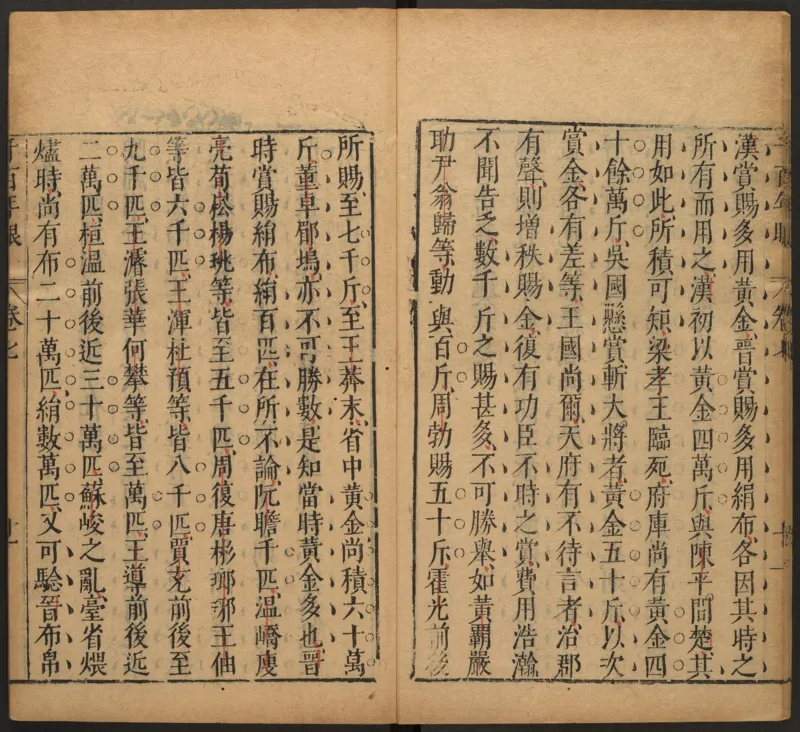 漢賞賜多用黃金晉賞賜多用絹布各因其時之
所有而用之漢初以黃金四萬斤與陳平間楚其
用如此所積可知梁孝王臨死府庫尚有黃金四
十餘萬斤吳國懸賞斬大將者黃金五十斤以次
賞金各有差等王國尚爾天府有不待言者治郡
有聲則增秩賜金復有功臣不時之賞費用浩瀚
不聞告乏數千斤之賜甚多不可勝舉如黃霸嚴
助尹翁歸等動與百斤周勃賜五十斤霍光前後
所賜至七千斤至王莽末省中黃金尚積六十萬
斤董卓郿塢亦不可勝數是知當時黃金多也晉
時賞賜絹布絹百匹在所不論阮瞻千匹溫嶠庾
亮荀崧楊珧等皆至五千匹周復唐彬瑯琊王伷
等皆六千匹王渾杜預等皆八千匹賈充前後至
九千匹王濬張華何攀等皆至萬匹王導前後近
二萬匹桓溫前後近三十萬匹蘇峻之亂臺省煨
燼時尚有布二十萬匹絹數萬匹又可驗晉布帛
千百年眼
卷七
十一